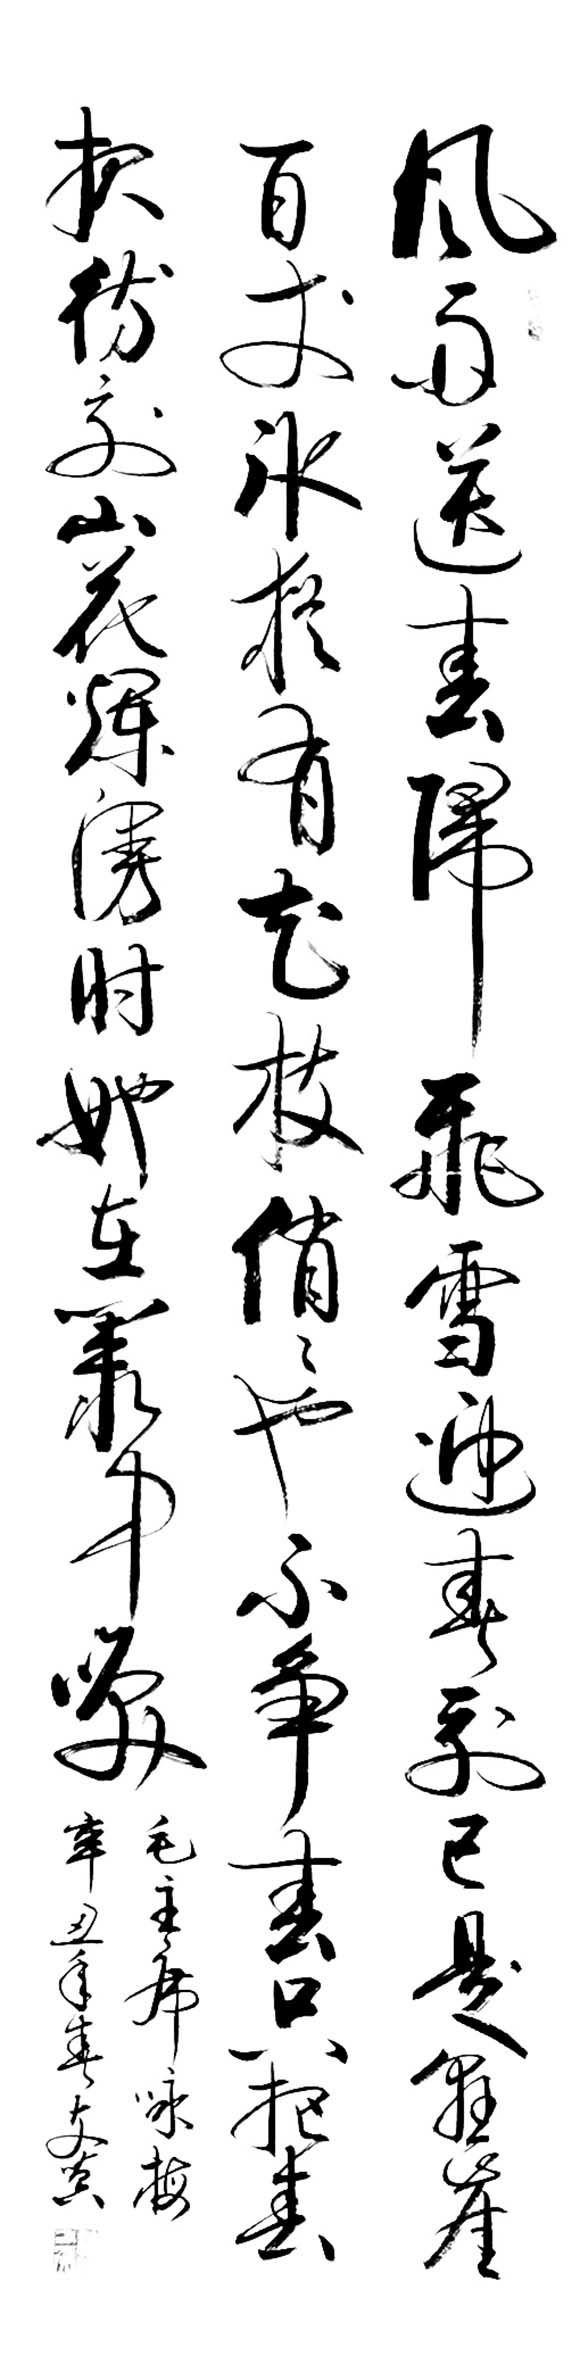 风雨送春归飞雪迎春到已是悬崖
百丈冰犹有花枝俏俏也不争春只把春
来报到山花烂漫时她在丛中笑
毛主席咏梅
辛丑年春文